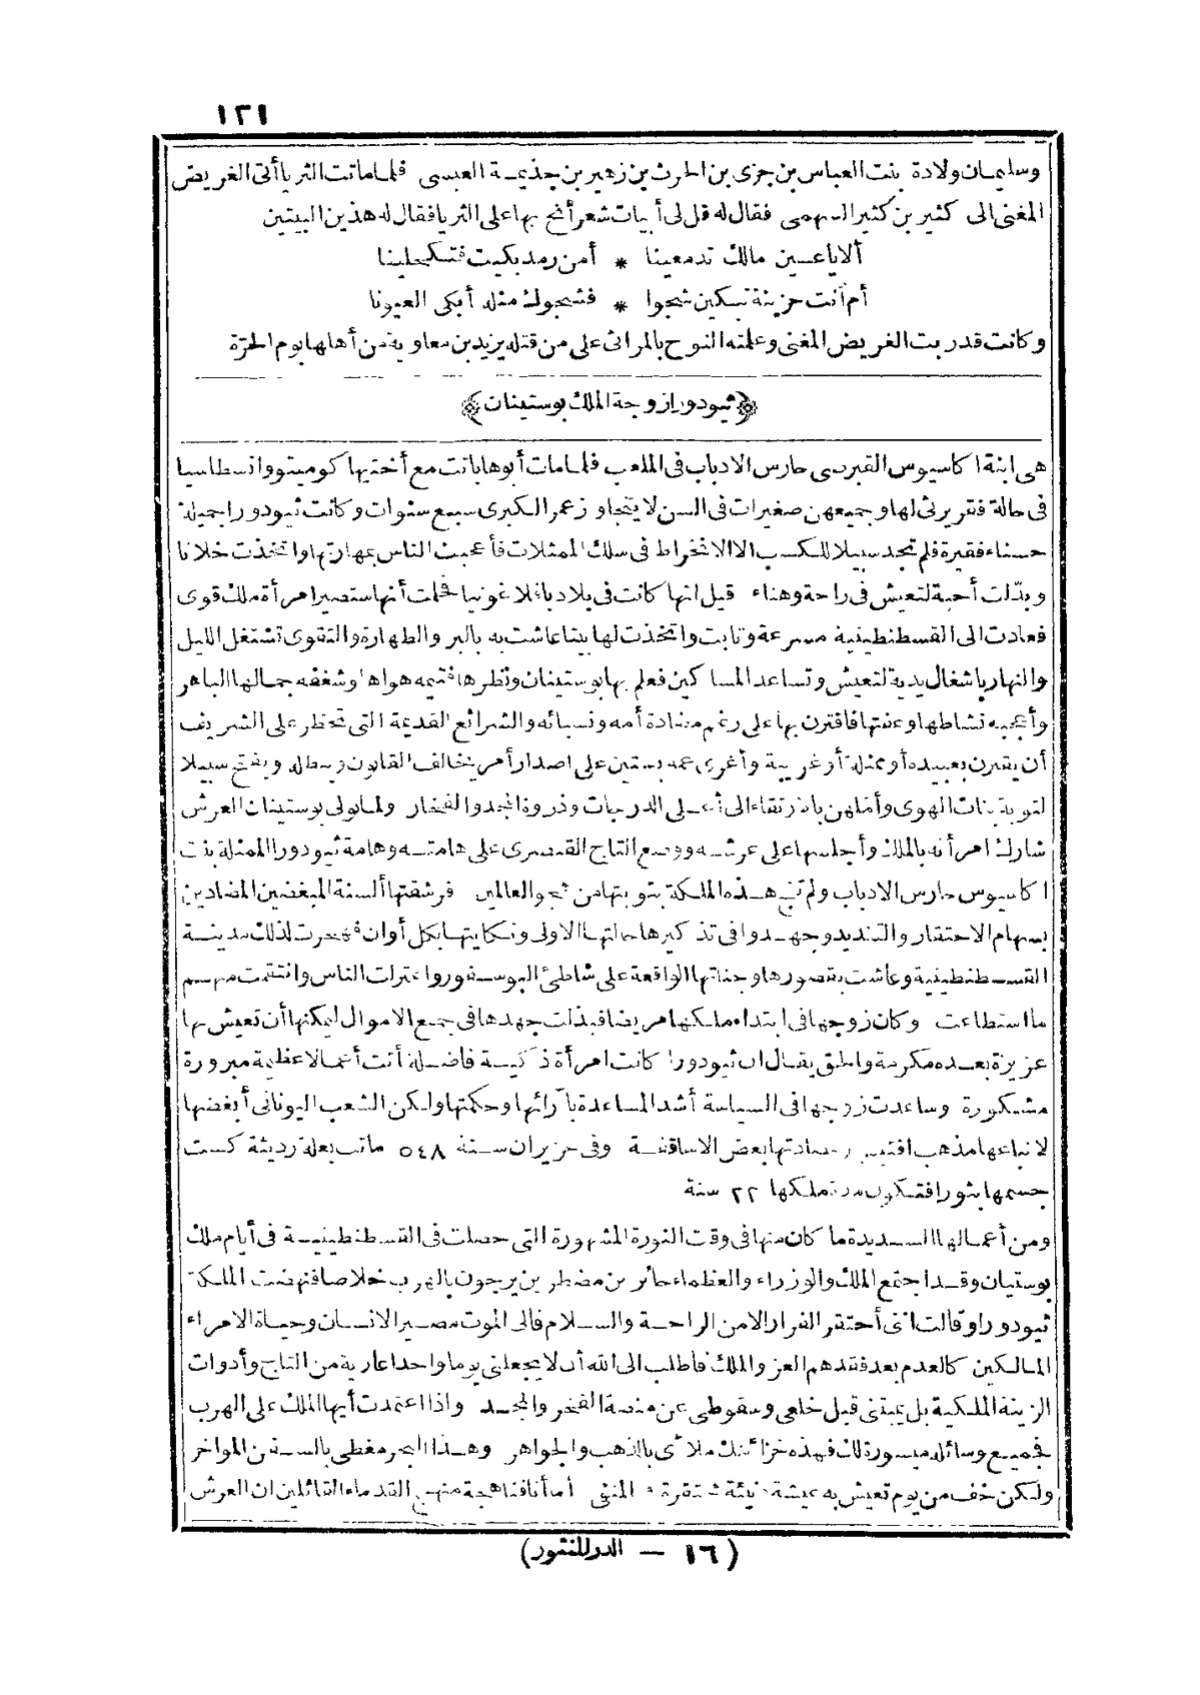 ١٢١
وسليمان ولادة بنت العباس بن جزى بن الحرث بن زهير بن جذيمة العبسى فلما ماتت الثريا أتى الغريض
المغنى الى كثير بن كثير السهمى فقال له قل لى أبيات شعر أنح بها على الثريا فقال له هذين البيتين
ألا يا عين مالك تدمعينا * أمن رمد بكيت فتكحلينا
أم أنت حزينة تبكين شجوا * فشجوك مثله أبكى العيونا
وكانت قد ربت الغريض المغنى وعلمته النوح بالمراثى على من قتله يزيد بن معاوية من أهلها يوم الحرة
﴿ثيودورا زوجة الملك يوستينان﴾
هى ابنة اكاسيوس القبرسى حارس الادباب فى الملعب فلما مات أبوها باتت مع أختيها كوميتو وانسطاسيا
فى حالة فقر يرثى لها وجميعهن صغيرات فى السن لا يتجاوز عمر الكبرى سبع سنوات وكانت ثيودورا جميلة
حسناء فقيرة فلم تجد سبيلا للكسب الا الانخراط فى سلك الممثلات فأعجبت الناس بمهارتها واتخذت خلانا
وبدّلت أحبة لتعيش فى راحة وهناء قيل انها كانت فى بلاد بافلاغونيا فحلمت أنها ستصير امرأة ملك قوى
فعادت الى القسطنطينية مسرعة وتابت واتخذت لها بيتا عاشت به بالبر والطهارة والتقوى تشتغل الليل
والنهار باشغال يدية لتعيش وتساعد المساكين فعلم بها يوستينان ونظرها فتيمه هواها وشغفه جمالها الباهر
وأعجبه نشاطها وعفتها فاقترن بها على رغم مضادة أمه ونسبائه والشرائع القديمة التى تحظر على الشريف
أن يقترن بعبيده أو ممثلة أو غريبة وأغرى عمه يستين على اصدار أمر يخالف القانون ويبطله ويفتح سبيلا
لتوبة بنات الهوى وأملهن بالارتقاء الى أعلى الدرجات وذروة المجد والفخار ولما تولى يوستينان العرش
شارك امرأته بالملك وأجلسها على عرشه ووضع التاج القيصرى على هامته وهامة ثيودورا الممثلة بنت
اكاسيوس حارس الادباب ولم تنج هذه الملكة بتوبتها من هجو العالمين فرشقتها ألسنة المبغضين المضادين
بسهام الاحتقار والتنديد وجهدوا فى تذكيرها حالتها الاولى ونكايتها بكل أوان فهجرت لذلك مدينة
القسطنطينية وعاشت بقصورها وجناتها الواقعة على شاطئ البوسفور واعتزلت الناس وانتقمت منهم
ما استطاعت وكان زوجها فى ابتداء ملكها مريضا فبذلت جهدها فى جمع الاموال ليمكنها أن تعيش بها
عزيزة بعده مكرمة والحق يقال ان ثيودورا كانت امرأة ذكية فاضلة أتت أعمالا عظيمة مبرورة
مشكورة وساعدت زوجها فى السياسة أشد المساعدة بآرائها وحكمتها ولكن الشعب اليونانى أبغضها
لاتباعها مذهب بعض الاساقفة وفى حزيران سنة ٥٤٨ ماتت بعلة رديئة كست
جسمها بثورا فتكون مدة ملكها ٢٢ سنة
ومن أعمالها السديدة ما كان منها فى وقت الثورة المشهورة التى حصلت فى القسطنطينية فى أيام ملك
يوستيان وقد اجتمع الملك والوزراء والعظماء حائرين مضطربين يرجون بالهرب خلاصا فنهضت الملكة
ثيودورا وقالت اننى أحتقر الفرار الامن الراحة والسلام فالى الموت مصير الانسان وحياة الامراء
المالكين كالعدم بعد فقدهم العز والملك فأطلب الى الله أن لا يجعلنى يوما واحدا عارية من التاج وأدوات
الزينة الملكية بل يميتنى قبل خلعى وسقوطى عن منصة الفخر والمجد واذا اعتمدت أيها الملك على الهرب
فجميع وسائله ميسورة لك فهذه خزائنك ملأى بالذهب والجواهر وهذا البحر مغطى بالسفن المواخر
ولكن خف من يوم تعيش به عيشة دنيئة محتقرة فى المنفى أما أنا فناهجة منهج القدماء القائلين ان العرش
(١٦ — الدر المنثور)